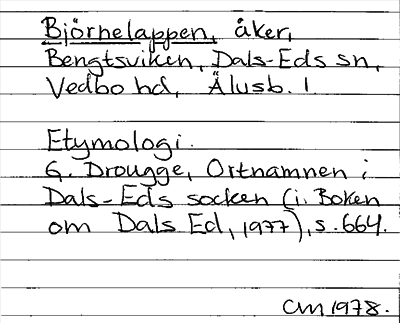 Björnelappen, åker,
Bengtsviken, Dals-Eds sn,
Vedbo hd, Älvsb. l.
Etymologi.
G. Drougge, Ortnamnen i
Dals-Eds socken (i. Boken
om Dals Ed, 1977), s. 664.
CM 1978.